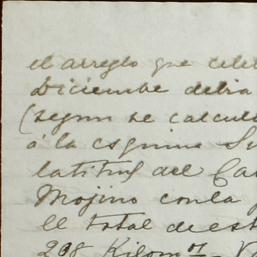 el arreglo que cele
Diciembre debia
(segun se calcul
á la esquina Su
latitud del Ca
Mojino con la
El total de est
298 Kilom.